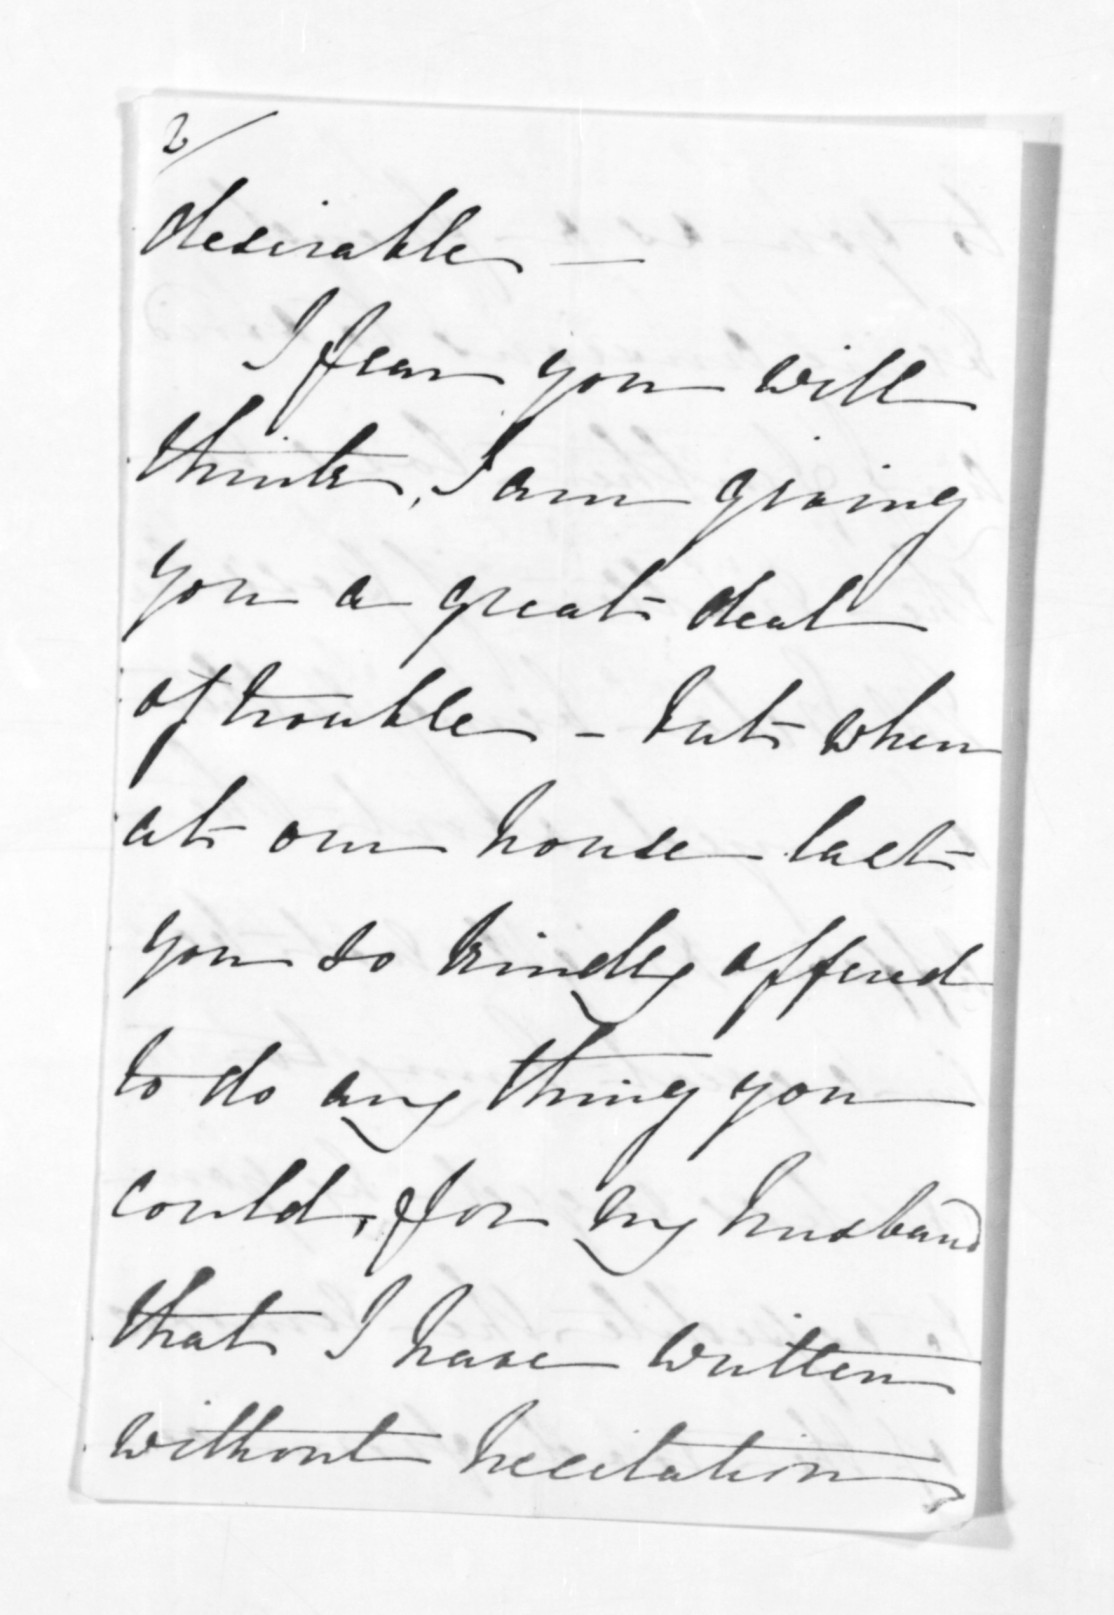 2/
desirable —
I fear you will
think, I am giving
you a great deal
of trouble - but when
at our house last
you so kindly offered
to do any thing you
could, for my husband
that I have written
without hesitation,